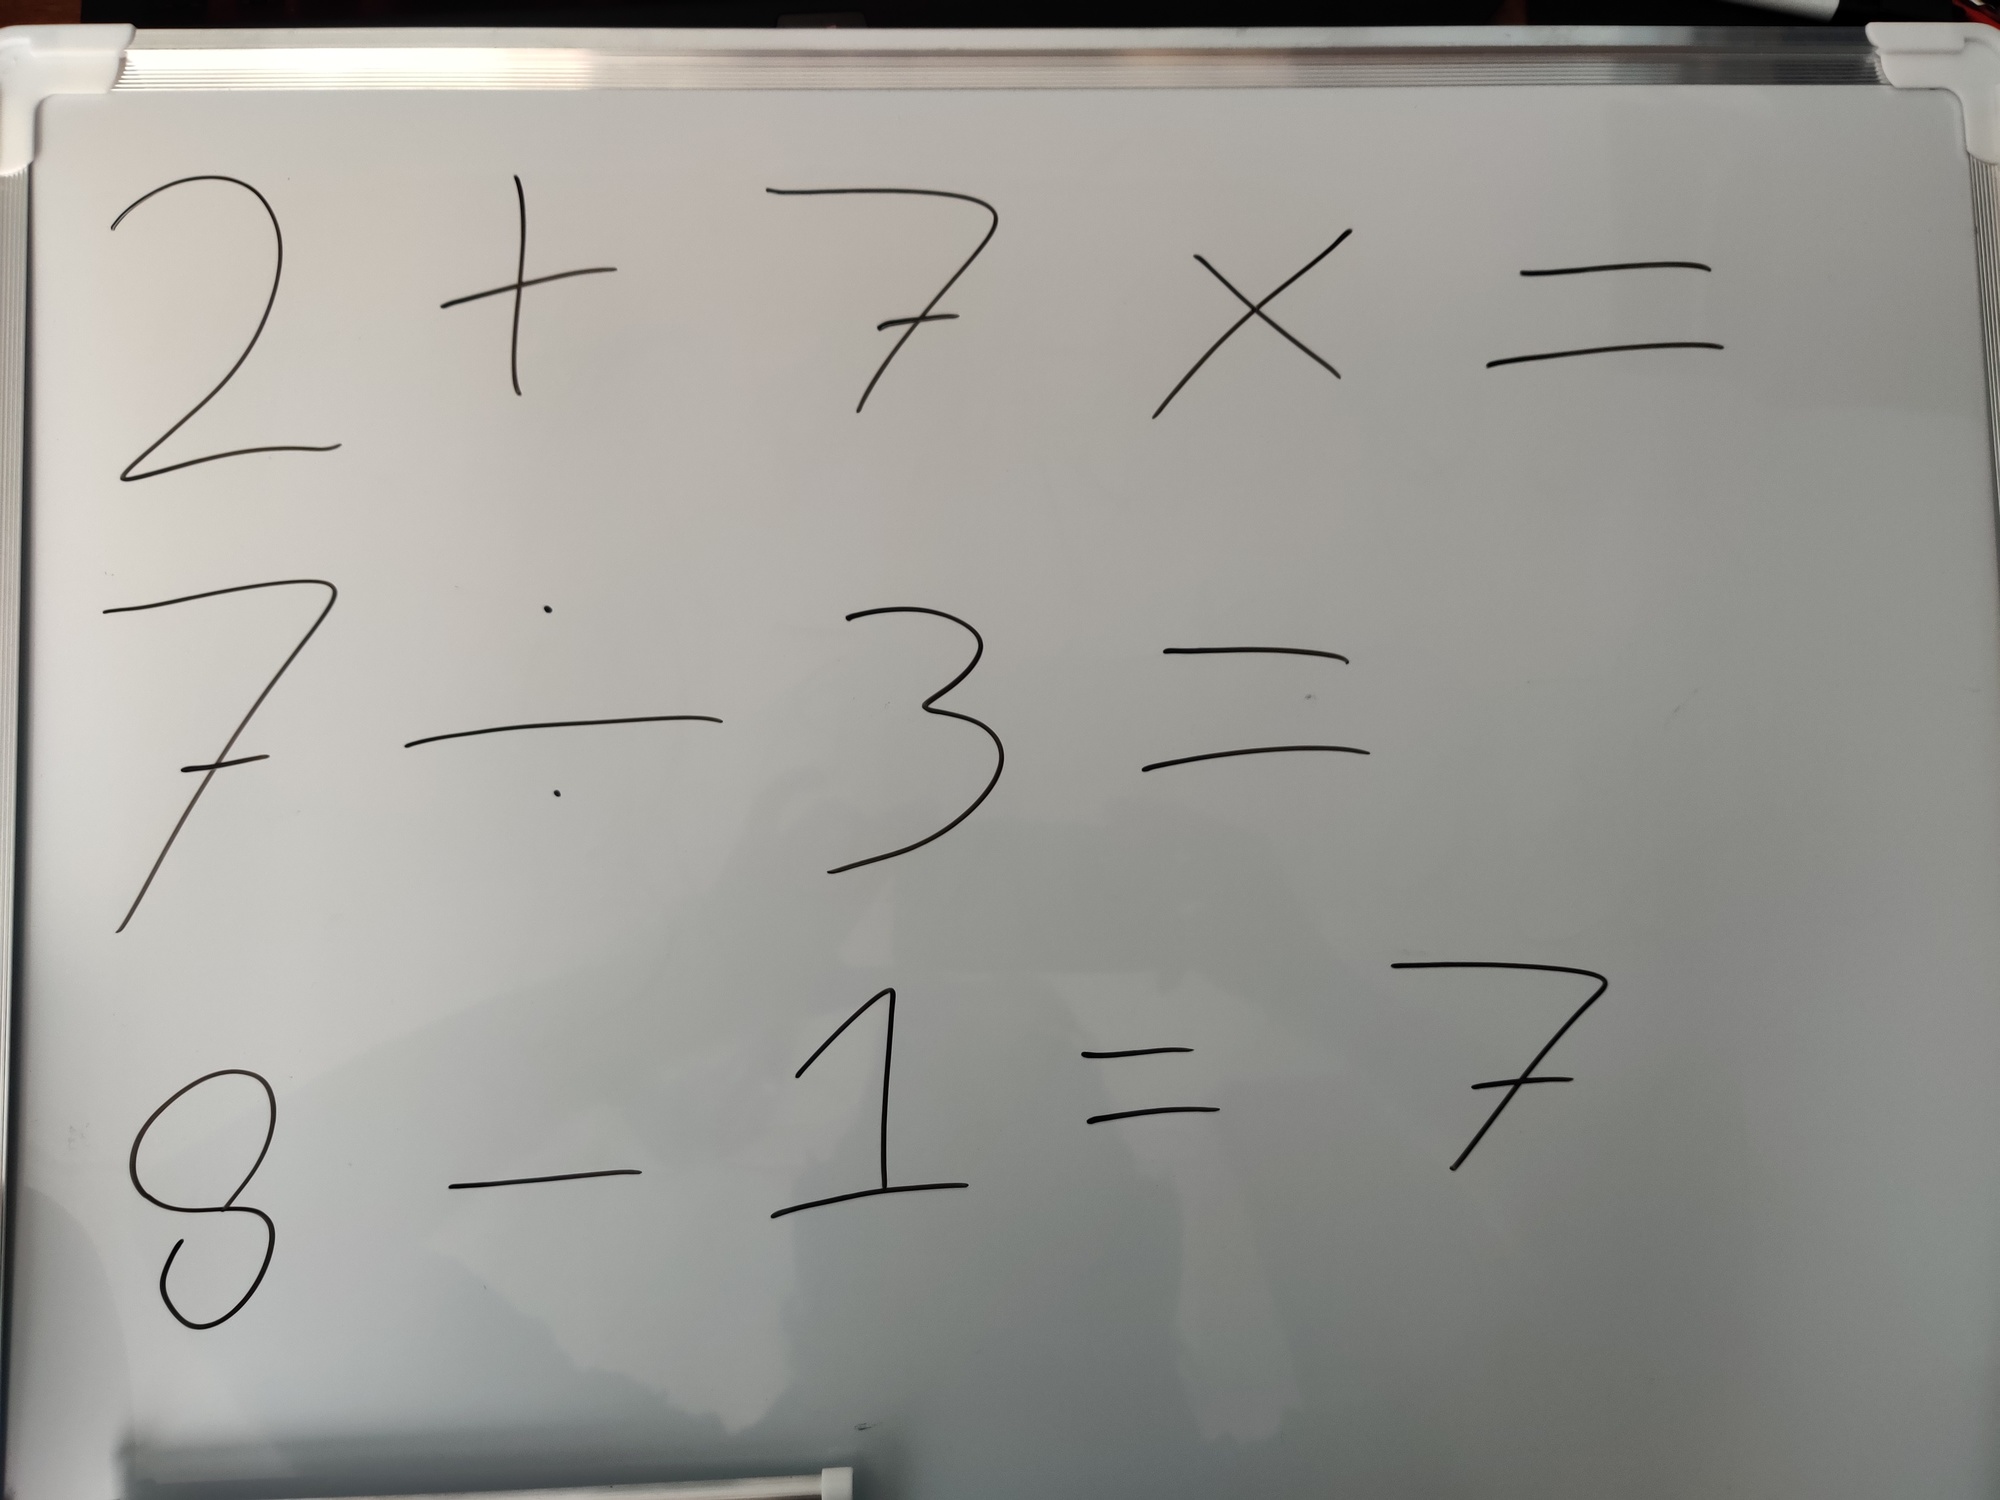 2 + 7 × =
7 ÷ 3 =
8 - 1 = 7